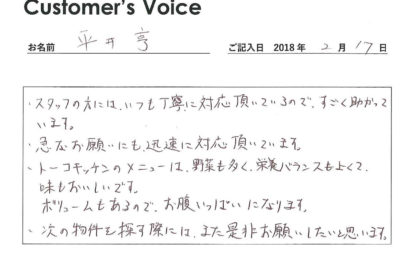 Customer's Voice
お名前 平井 亨 ご記入日 2018年 2月 17日
・スタッフの方には、いつも丁寧に対応頂いているので、すごく助かって
います。
・急なお願いにも、迅速に対応頂いています。
・トーコキッチンのメニューは、野菜も多く、栄養バランスもよくて、
味もおいしいです。
ボリュームもあるので、お腹いっぱいになります。
・次の物件を探す際には、また是非お願いしたいと思います。